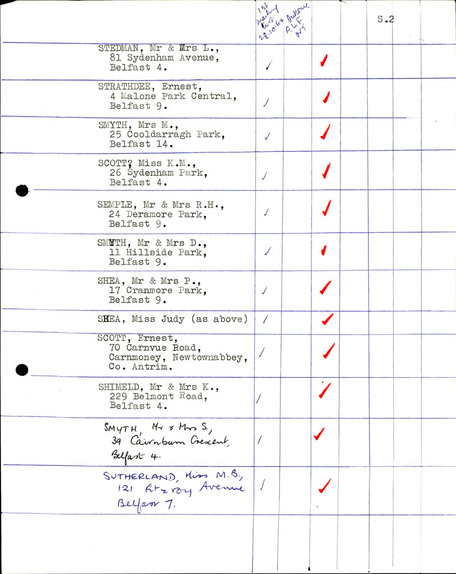 S.2
1st
28.10.64
A.L.F
NY
STEDMAN, Mr & Mrs L.,
81 Sydenham Avenue,
Belfast 4.
STRATHDEE, Ernest,
4 Malone Park Central,
Belfast 9.
SMYTH, Mrs M.,
25 Cooldarragh Park,
Belfast 14.
SCOTT? Miss K.M.,
26 Sydenham Park,
Belfast 4.
SEMPLE, Mr & Mrs R.H.,
24 Deramore Park,
Belfast 9.
SMYTH, Mr & Mrs D.,
11 Hillside Park,
Belfast 9.
SHEA, Mr & Mrs P.,
17 Cranmore Park,
Belfast 9.
SHEA, Miss Judy (as above)
SCOTT, Ernest,
70 Carnvue Road,
Carnmoney, Newtownabbey,
Co. Antrim.
SHIMELD, Mr & Mrs K.,
229 Belmont Road,
Belfast 4.
SMYTH, Mr & Mrs S,
39 Cairnburn Crescent,
Belfast 4.
SUTHERLAND, Miss M.B,
121 Fitzroy Avenue
Belfast 7.